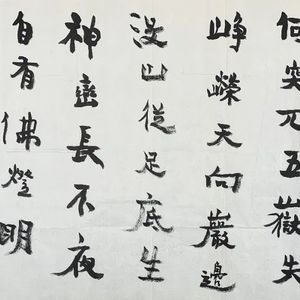 何突兀五嶽失
崢嶸天向巖邊
沒山從足底生
神巒長不夜
自有佛燈明